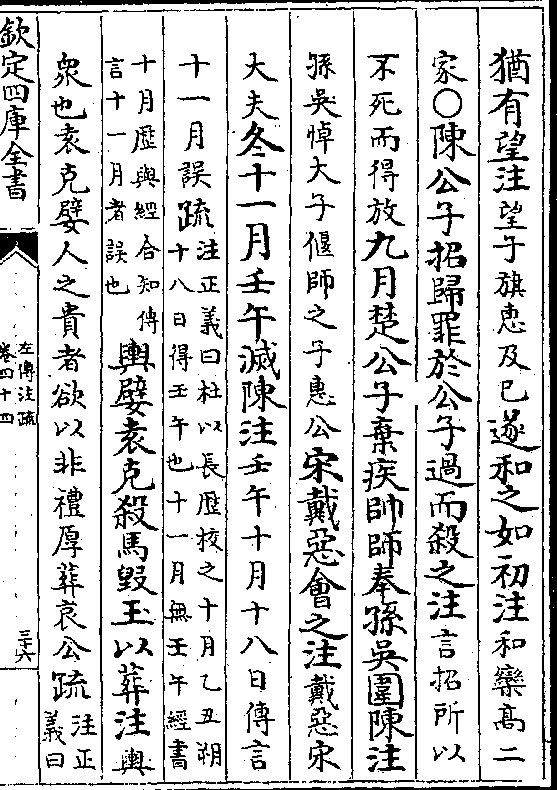 猶有望注望子旗惠及已遂和之如初注和欒高二
家○陳公子招歸罪於公子過而殺之注言招所以
不死而得放九月楚公子棄疾帥師奉孫吳圍陳注
孫吳悼大子偃師之子惠公宋戴惡會之注戴惡宋
大夫冬十一月壬午滅陳注壬午十月十八日傳言
十一月誤疏注正義曰杜以長歷校之十月乙丑朔
十八日得壬午也十一月無壬午經書
十月歷與經合知傳
言十一月者誤也
輿嬖袁克殺馬毀玉以葬注輿
衆也袁克嬖人之貴者欲以非禮厚葬哀公疏注正
義曰
欽定四庫全書
左傳注疏
卷四十四
三十六